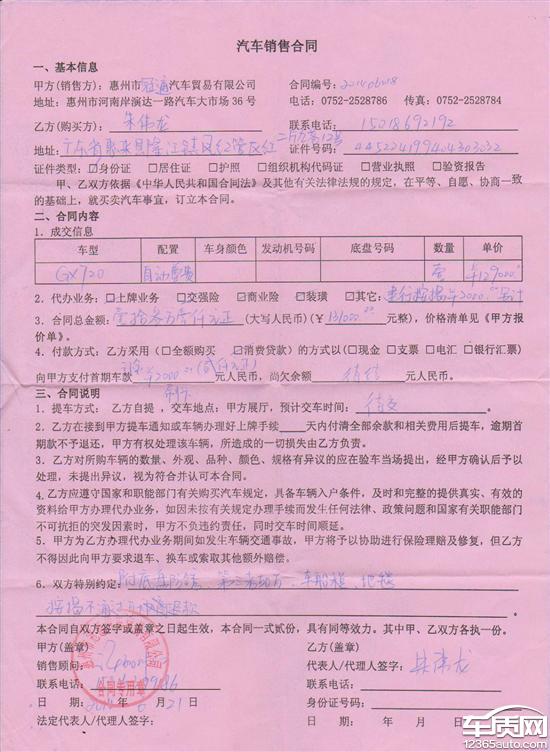 汽车销售合同
一、基本信息
甲方(销售方): 惠州市冠通汽车贸易有限公司 合同编号:
地址: 惠州市河南岸演达一路汽车大市场36号 电话: 0752-2528786 传真: 0752-2528784
乙方(购买方): 朱伟龙 联系电话: 15018692192
地址: 广东省 证件号码:
证件类型: ☑身份证 □居住证 □护照 □组织机构代码证 □营业执照 □验资报告
甲、乙双方依据《中华人民共和国合同法》及其他有关法律法规的规定,在平等、自愿、协商一致
的基础上,就买卖汽车事宜,订立本合同。
二、合同内容
1. 成交信息
车型 配置 车身颜色 发动机号码 底盘号码 数量 单价
GX720 自动尊贵 壹 ¥129000.00
2. 代办业务: □上牌业务 □交强险 ☑商业险 □装璜 ☑其它: 建行按揭¥2000.00
3. 合同总金额: 壹拾叁万壹仟元正 (大写人民币)(¥ 131000.00 元整),价格清单见《甲方报
价单》。
4. 付款方式: 乙方采用(□全额购买 ☑消费贷款)的方式以(□现金 □支票 □电汇 □银行汇票)
向甲方支付首期车款 ¥2000.00 (贰仟元正) 元人民币,尚欠余额 元人民币。
三、合同说明
1. 提车方式: 乙方自提,交车地点: 甲方展厅,预计交车时间: 待交 。
2. 乙方在接到甲方提车通知或车辆办理好上牌手续 天内付清全部余款和相关费用后提车,逾期首
期款不予退还,甲方有权处理该车辆,所造成的一切损失由乙方负责。
3. 乙方对所购车辆的数量、外观、品种、颜色、规格有异议的应在验车当场提出,经甲方确认后予以
处理,未提出异议,视为符合并认可本合同。
4. 乙方应遵守国家和职能部门有关购买汽车规定,具备车辆入户条件,及时和完整的提供真实、有效的
资料给甲方办理代办业务,如因未按有关规定办理手续而发生任何法律、政策问题和国家有关职能部门
不可抗拒的突发因素时,甲方不负违约责任,同时交车时间顺延。
5. 甲方为乙方办理代办业务期间如发生车辆交通事故,甲方将予以协助进行保险理赔及修复,但乙方
不得因此向甲方要求退车、换车或索取其他额外赔偿。
6. 双方特别约定: 车船税、地毯
按揭不通过
本合同自双方签字或盖章之日起生效,合同一式贰份,具有同等效力。其中甲、乙双方各执一份。
甲方(盖章) 乙方(盖章)
销售顾问: 代表人/代理人签字: 朱伟龙
联系电话: 联系电话:
合同专用章
日 期: 年 6 月 21 日 身份证号码:
法定代表人/代理人签字: 日 期: 年 月 日
车质网
www.12365auto.com